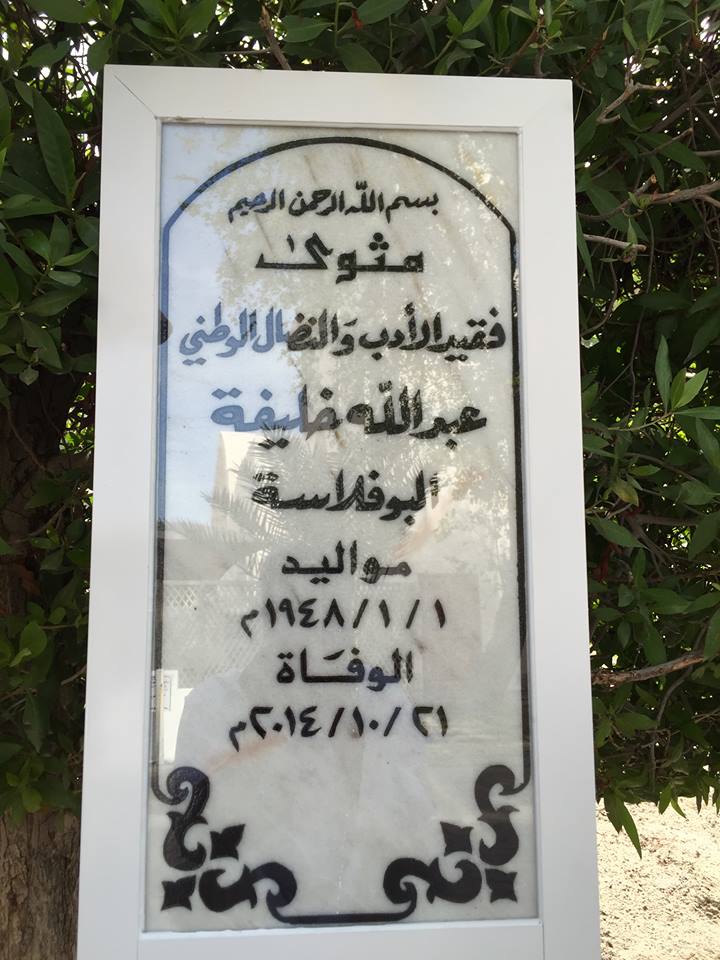 بسم الله الرحمن الرحيم
مثوى
فقيد الأدب والنضال الوطني
عبدالله خليفة
البوفلاسة
مواليد
١/١/١٩٤٨م
الوفَاة
٢١/١٠/٢٠١٤م